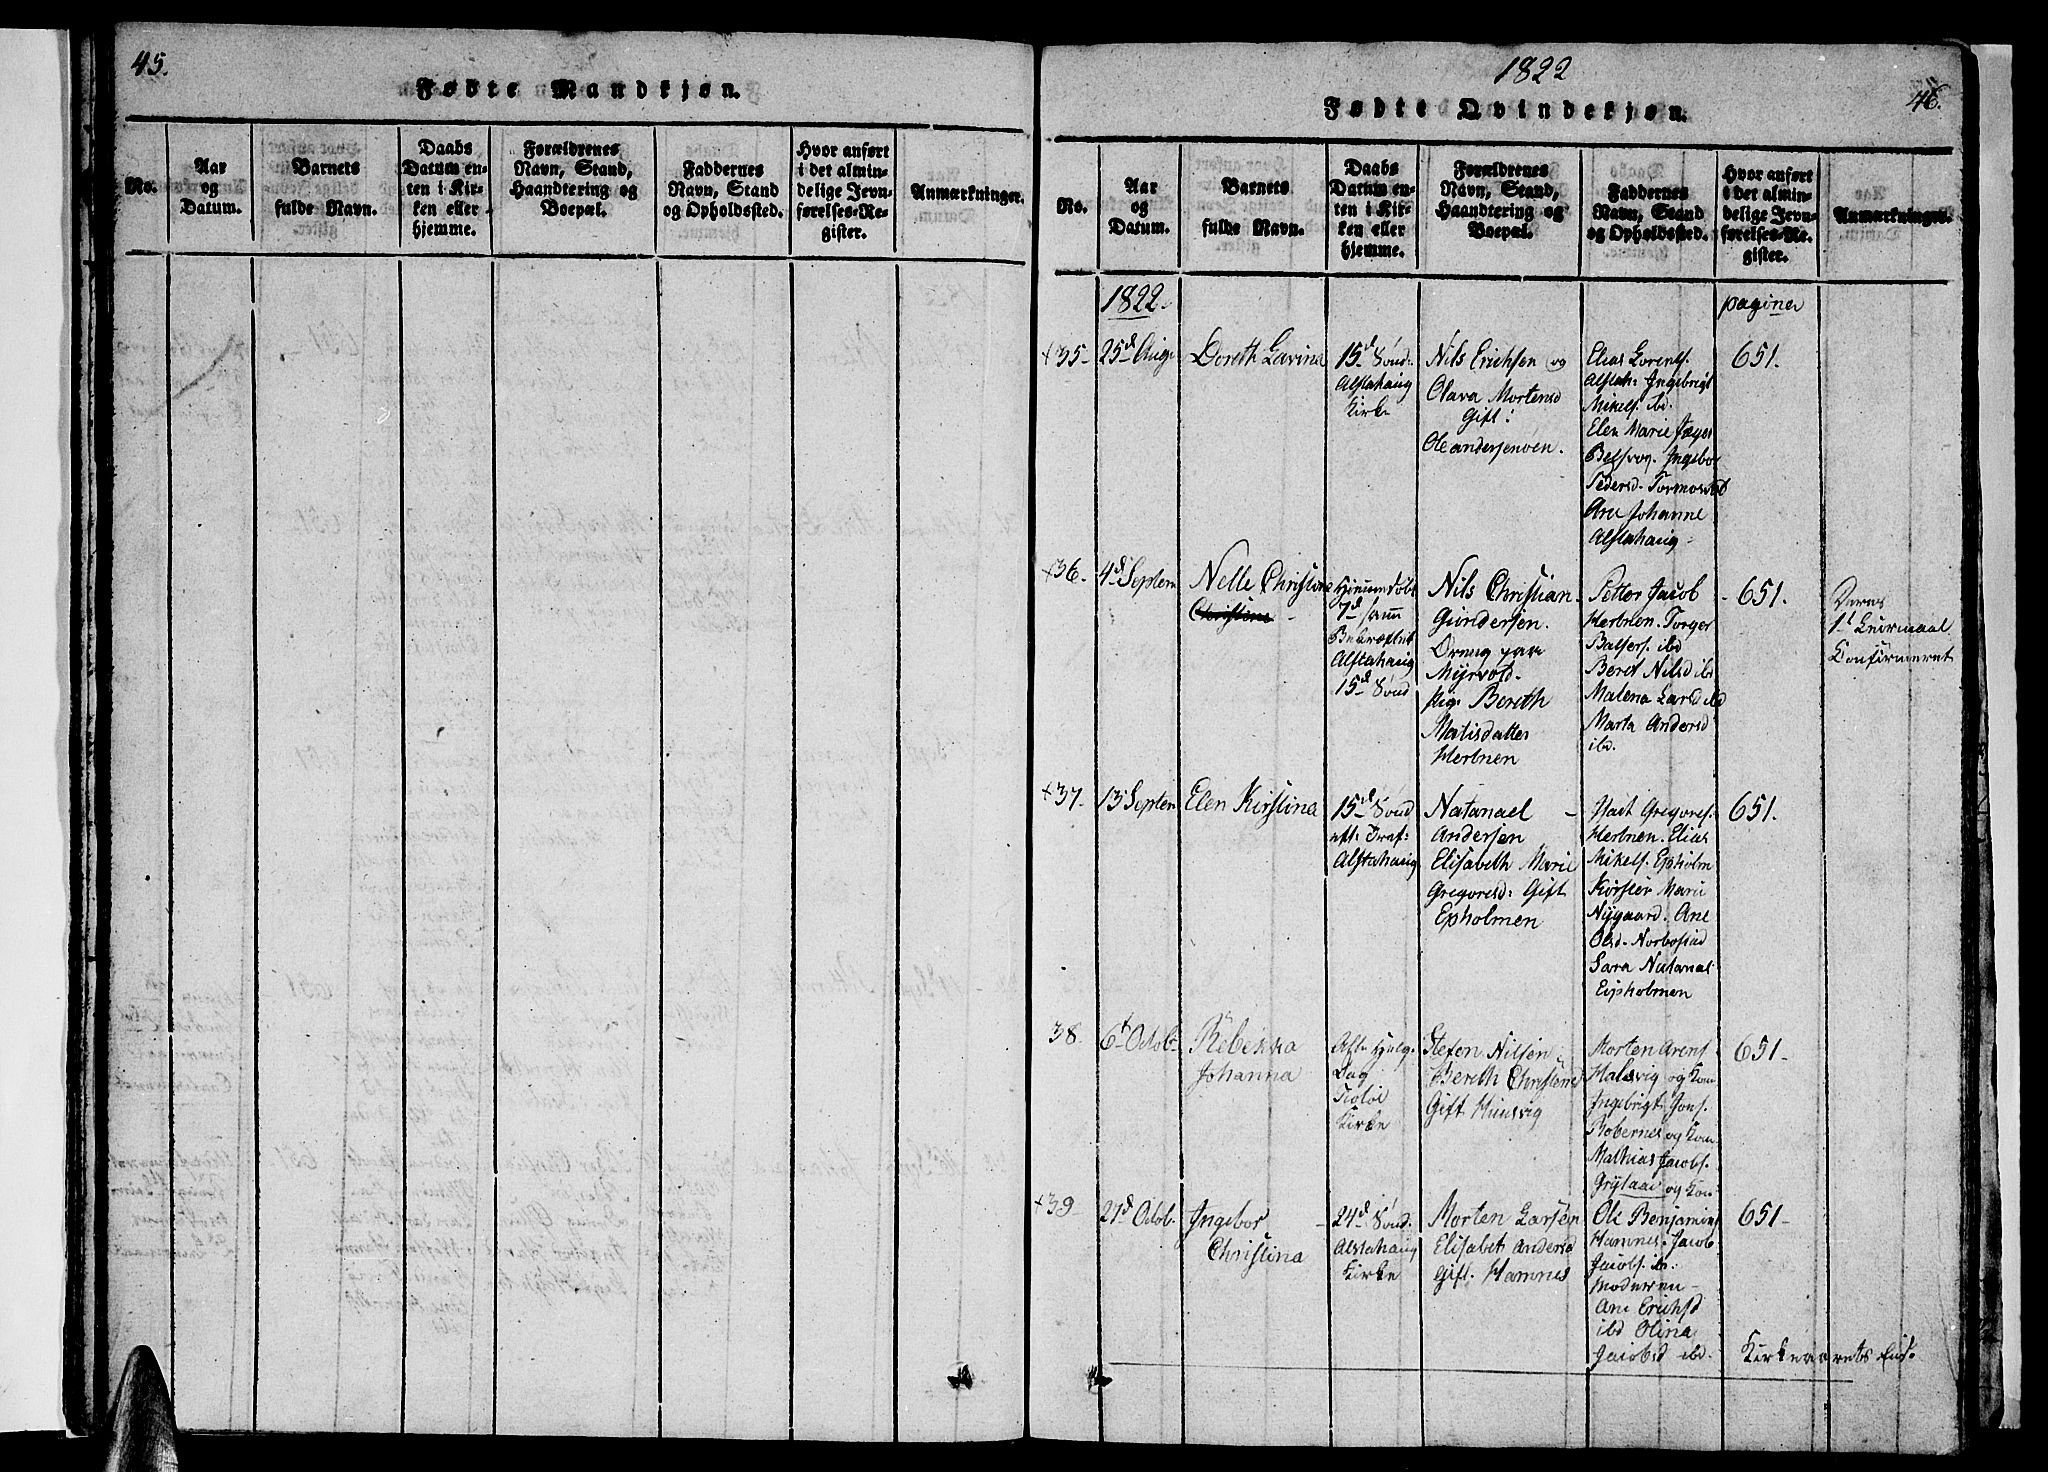 45.
Fødte Mandkjøn.
No.
Aar
og
Datum.
Barnets
fulde Navn.
Daabs
Datum en-
ten i Kir-
ken eller
hjemme.
Forældrenes
Navn, Stand,
Haandtering og
Boepæl.
Faddernes
Navn, Stand
og Opholdssted.
Hvor anført
i det almin-
delige Jevn-
førelses-Re-
gister.
Anmærkninger.
1822
46.
Fødte Qvindekjøn.
No.
Aar
og
Datum.
Barnets
fulde Navn.
Daabs
Datum en-
ten i Kir-
ken eller
hjemme.
Forældrenes
Navn, Stand,
Haandtering og
Boepæl.
Faddernes
Navn, Stand
og Opholdssted.
Hvor anført
i det almin-
delige Jevn-
førelses-Re-
gister.
Anmærkninger.
1822.
pagina
+35.
25d Aug
Doreth Lavina
15d Sønd.
Alstahaug
Kirke
Nils Erichsen og
Olava Mortensd
Gift:
Oleandersenøen.
Elias Lorents.
Alstah: Ingebrigt
Mikels. ibd.
Elen Marie Jæger
Belsvog. Ingebor
Pedersd. Tormodsæt
Ane Johanne
Alstahaug
651.
+36.
4d Septem
Nelle Christine
Christine
Hjemmedøbt
7d
Bekræftet
Alstahaug
15d Sønd
Nils Christian
Gundersen.
Myrvold.
pig. Bereth
Matisdatter
Herbnen
Petter Jacob
Herbnen. Torger
Balsers. ibd
Beret Nilsd ibd
Malena Larsd ibd
Marta Andersd
ibd.
651.
Deres
1t Leiermaal
Confirmeret
+37.
13 Septem
Elen Kirstina
15d Sønd
eft: Traf:
Alstahaug
Natanael
Andersen
Elisabeth Marie
Gregoresd: Gift
Epholmen
Isach Gregores.
Herbnen. Elias
Mikels. Epholm
Kirster Marie
Nygaard. Ane
Olsd. Norbostad
Sara Natanal
Epholmen
651.
38.
6t Octob
Rebekka
Johanna
Alle Helg.
Dag
Tiotøe
Kirke
Stefen Nilsen
Bereth Christensd
Gift Hunsvig
Morten Arens.
Halsvig og Kon
Ingebrigt Jons.
Robernes og Kon
Mathias Jacobs.
Grytaae og Kon
651
+39
27d Octob.
Ingebor
Christina
24d Sønd.
Alstahaug
Kirke
Morten Larsen
Elisabet Andersd
Gift. Hamnes
Ole Benjamins
Hamnes. Jacob
Jacobs. ib.
Moderen
Ane Erichsd
ibd Olina
Jacobsd ibd.
651
Kirkeaarets End.